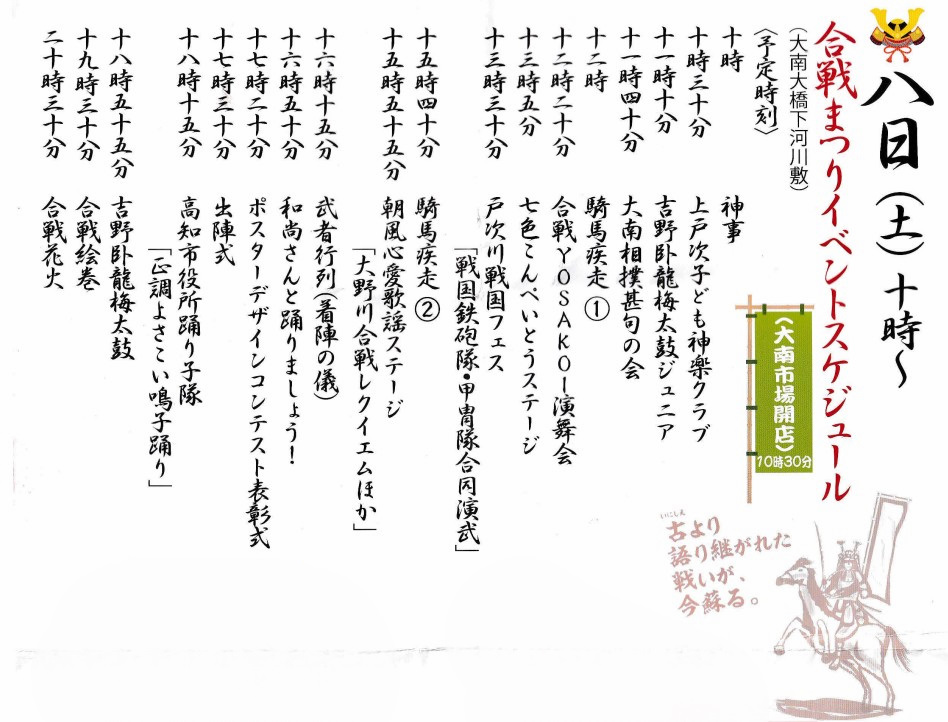 八日(土)十時〜
合戦まつりイベントスケジュール
(大南大橋下河川敷)
〈大南市場開店〉
10時30分
〈予定時刻〉
十時 神事
十時三十分 上戸次子ども神楽クラブ
十一時十分 吉野臥龍梅太鼓ジュニア
十一時四十分 大南相撲甚句の会
十二時 騎馬疾走①
十二時二十分 合戦YOSAKOI演舞会
十三時五分 七色こんぺいとうステージ
十三時三十分 戸次川戦国フェス
「戦国鉄砲隊・甲冑隊合同演武」
十五時四十分 騎馬疾走②
十五時五十五分 朝風心愛歌謡ステージ
「大野川合戦レクイエムほか」
十六時十五分 武者行列(着陣の儀)
十六時五十分 和尚さんと踊りましょう!
十七時二十分 ポスターデザインコンテスト表彰式
十七時三十分 出陣式
十八時十五分 高知市役所踊り子隊
「正調よさこい鳴子踊り」
十八時五十五分 吉野臥龍梅太鼓
十九時三十分 合戦絵巻
二十時三十分 合戦花火
いにしえ
古より
語り継がれた
戦いが、
今蘇る。